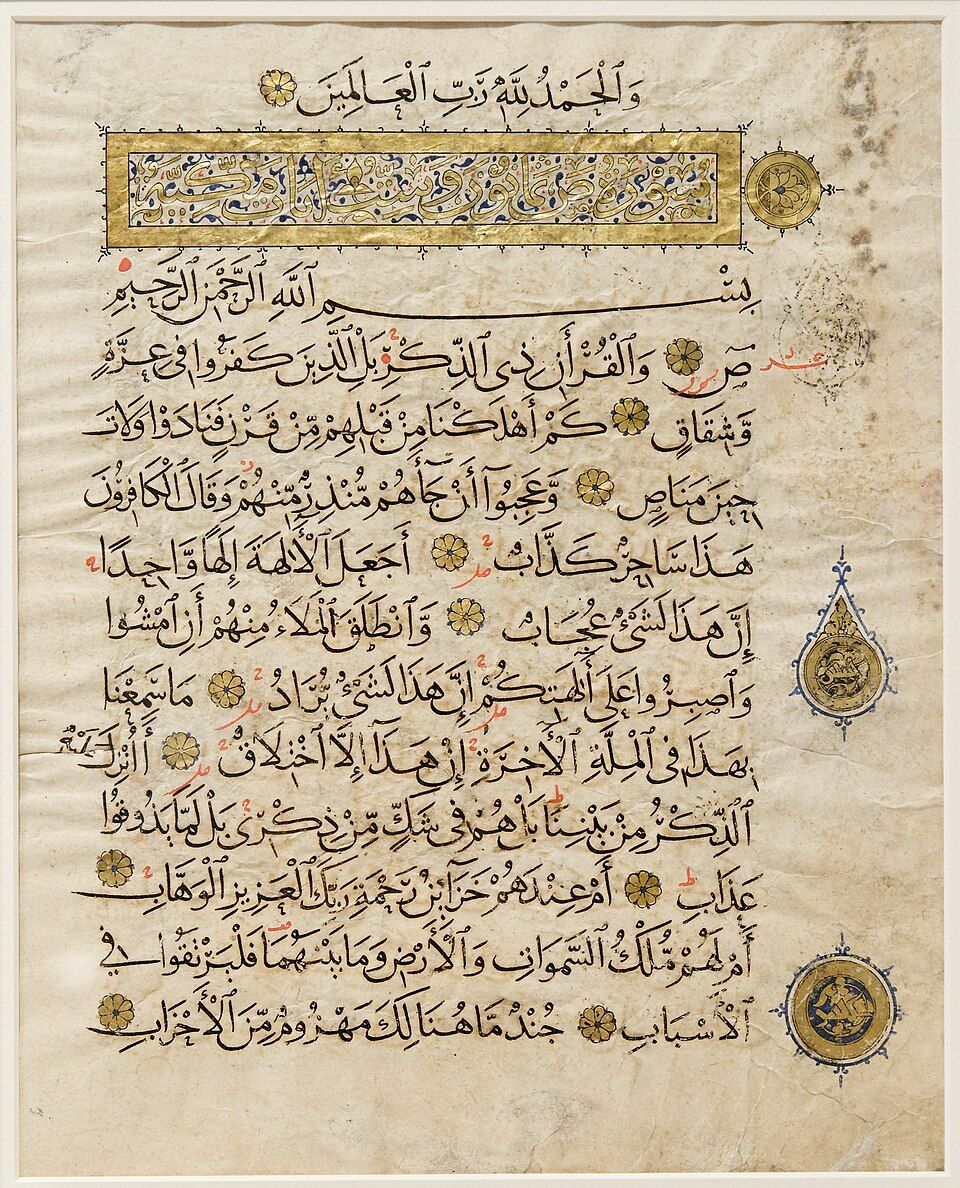 وَٱلْحَمْدُ لِلَّهِ رَبِّ ٱلْعَالَمِينَ
سورة ص ثمانون وست آيات مكية
بِسْمِ ٱللَّهِ ٱلرَّحْمَٰنِ ٱلرَّحِيمِ
صٓ وَٱلْقُرْأَنِ ذِى ٱلذِّكْرِ بَلِ ٱلَّذِينَ كَفَرُوا فِى عِزَّةٍ
وَّشِقَاقٍ كَمْ أَهْلَكْنَا مِنْ قَبْلِهِمْ مِّنْ قَرْنٍ فَنَادَوْا وَلَاتَ
حِينَ مَنَاصٍ وَّعَجِبُوآ أَنْ جَآءَهُمْ مُّنْذِرٌ مِّنْهُمْ وَقَالَ ٱلْكَافِرُونَ
هَذَا سَاحِرٌ كَذَّابٌ أَجَعَلَ ٱلْأَلِهَةَ إِلَهًا وَّاحِدًا
إِنَّ هَذَا لَشَىْءٌ عُجَابٌ وَّٱنْطَلَقَ ٱلْمَلَاءُ مِنْهُمْ أَنِ ٱمْشُوا
وَٱصْبِرُوا عَلَى أَلِهَتِكُمْ إِنَّ هَذَا لَشَىْءٌ يُّرَادُ مَا سَمِعْنَا
بِهَذَا فِى ٱلْمِلَّةِ ٱلْأَخِرَةِ إِنْ هَذَآ إِلَّا ٱخْتِلَاقٌ أَأُنْزِلَ عليه
ٱلذِّكْرُ مِنْ بَيْنِنَا بَلْ هُمْ فِى شَكٍّ مِّنْ ذِكْرِى بَلْ لَمَّا يَذُوقُوا
عَذَابِ أَمْ عِنْدَهُمْ خَزَآئِنُ رَحْمَةِ رَبِّكَ ٱلْعَزِيزِ ٱلْوَهَّابِ
أَمْ لَهُمْ مُّلْكُ ٱلسَّمَوَاتِ وَٱلْأَرْضِ وَمَا بَيْنَهُمَا فَلْيَرْتَقُوا فِى
ٱلْأَسْبَابِ جُنْدٌ مَا هُنَالِكَ مَهْزُومٌ مِّنَ ٱلْأَحْزَابِ